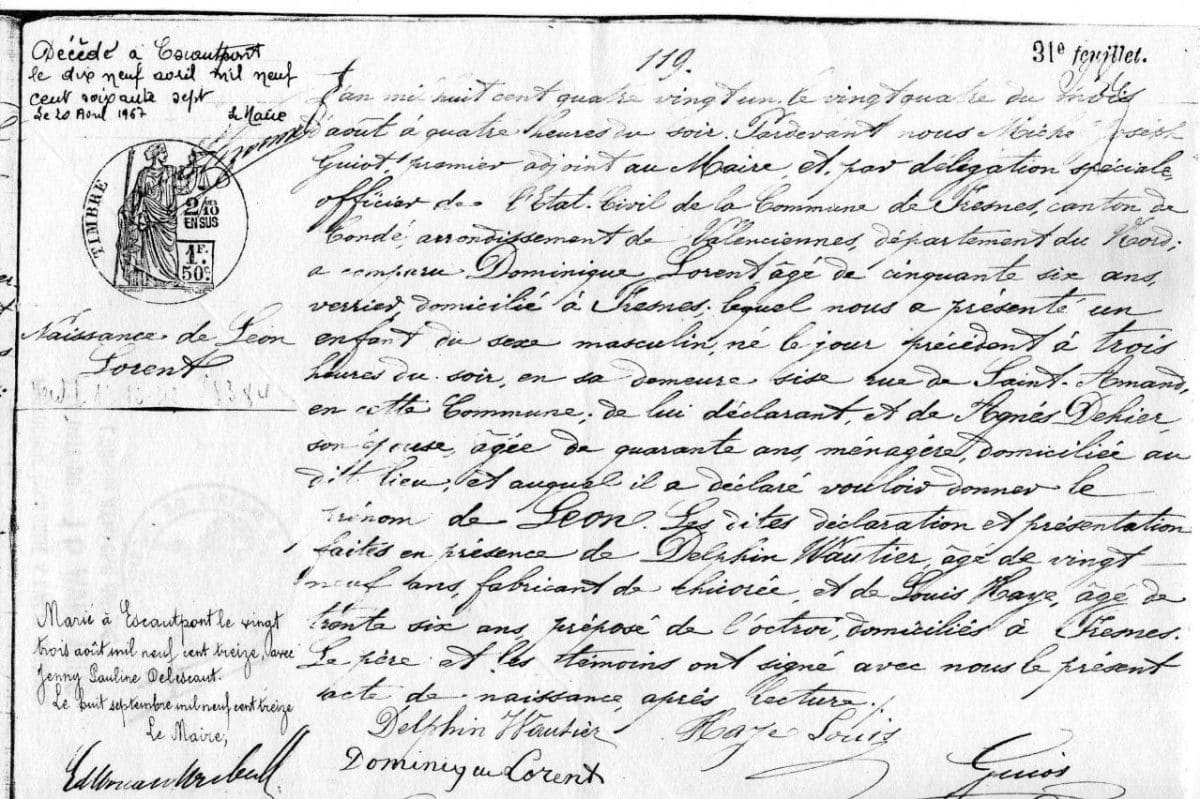 119.
31e feuillet.
Décédé à Escautpont
le dix neuf avril mil neuf
cent soixante sept
Le 20 Avril 1967 Le Maire
TIMBRE
2/10
EN SUS
1 F.
50c
Naissance de Léon
Lorent
Marié à Escautpont le vingt
trois août mil neuf cent treize, avec
Jenny Pauline Delescaut.
Le huit septembre mil neuf cent treize
Le Maire,
L'an mil huit cent quatre vingt un, le vingt quatre du mois
d'août à quatre heures du soir. Pardevant nous Michel Joseph
Guiot, premier adjoint au Maire, et, par délégation spéciale,
officier de l'Etat-Civil de la Commune de Fresnes, canton de
Condé, arrondissement de Valenciennes, département du Nord;
a comparu Dominique Lorent, âgé de cinquante six ans,
verrier, domicilié à Fresnes, lequel nous a présenté un
enfant du sexe masculin, né le jour précédent à trois
heures du soir, en sa demeure sise rue de Saint-Amand,
en cette Commune, de lui déclarant, et de Agnès Dehier,
son épouse, âgée de quarante ans, ménagère, domiciliée au
dit lieu, et auquel il a déclaré vouloir donner le
prénom de Léon. Les dites déclaration et présentation
faites en présence de Delphin Wautier, âgé de vingt
neuf ans, fabricant de chicorée, et de Louis Haye, âgé de
trente six ans, préposé de l'octroi, domiciliés à Fresnes.
Le père et les témoins ont signé avec nous le présent
acte de naissance, après lecture.
Delphin Wautier Haye Louis
Dominique Lorent Guiot